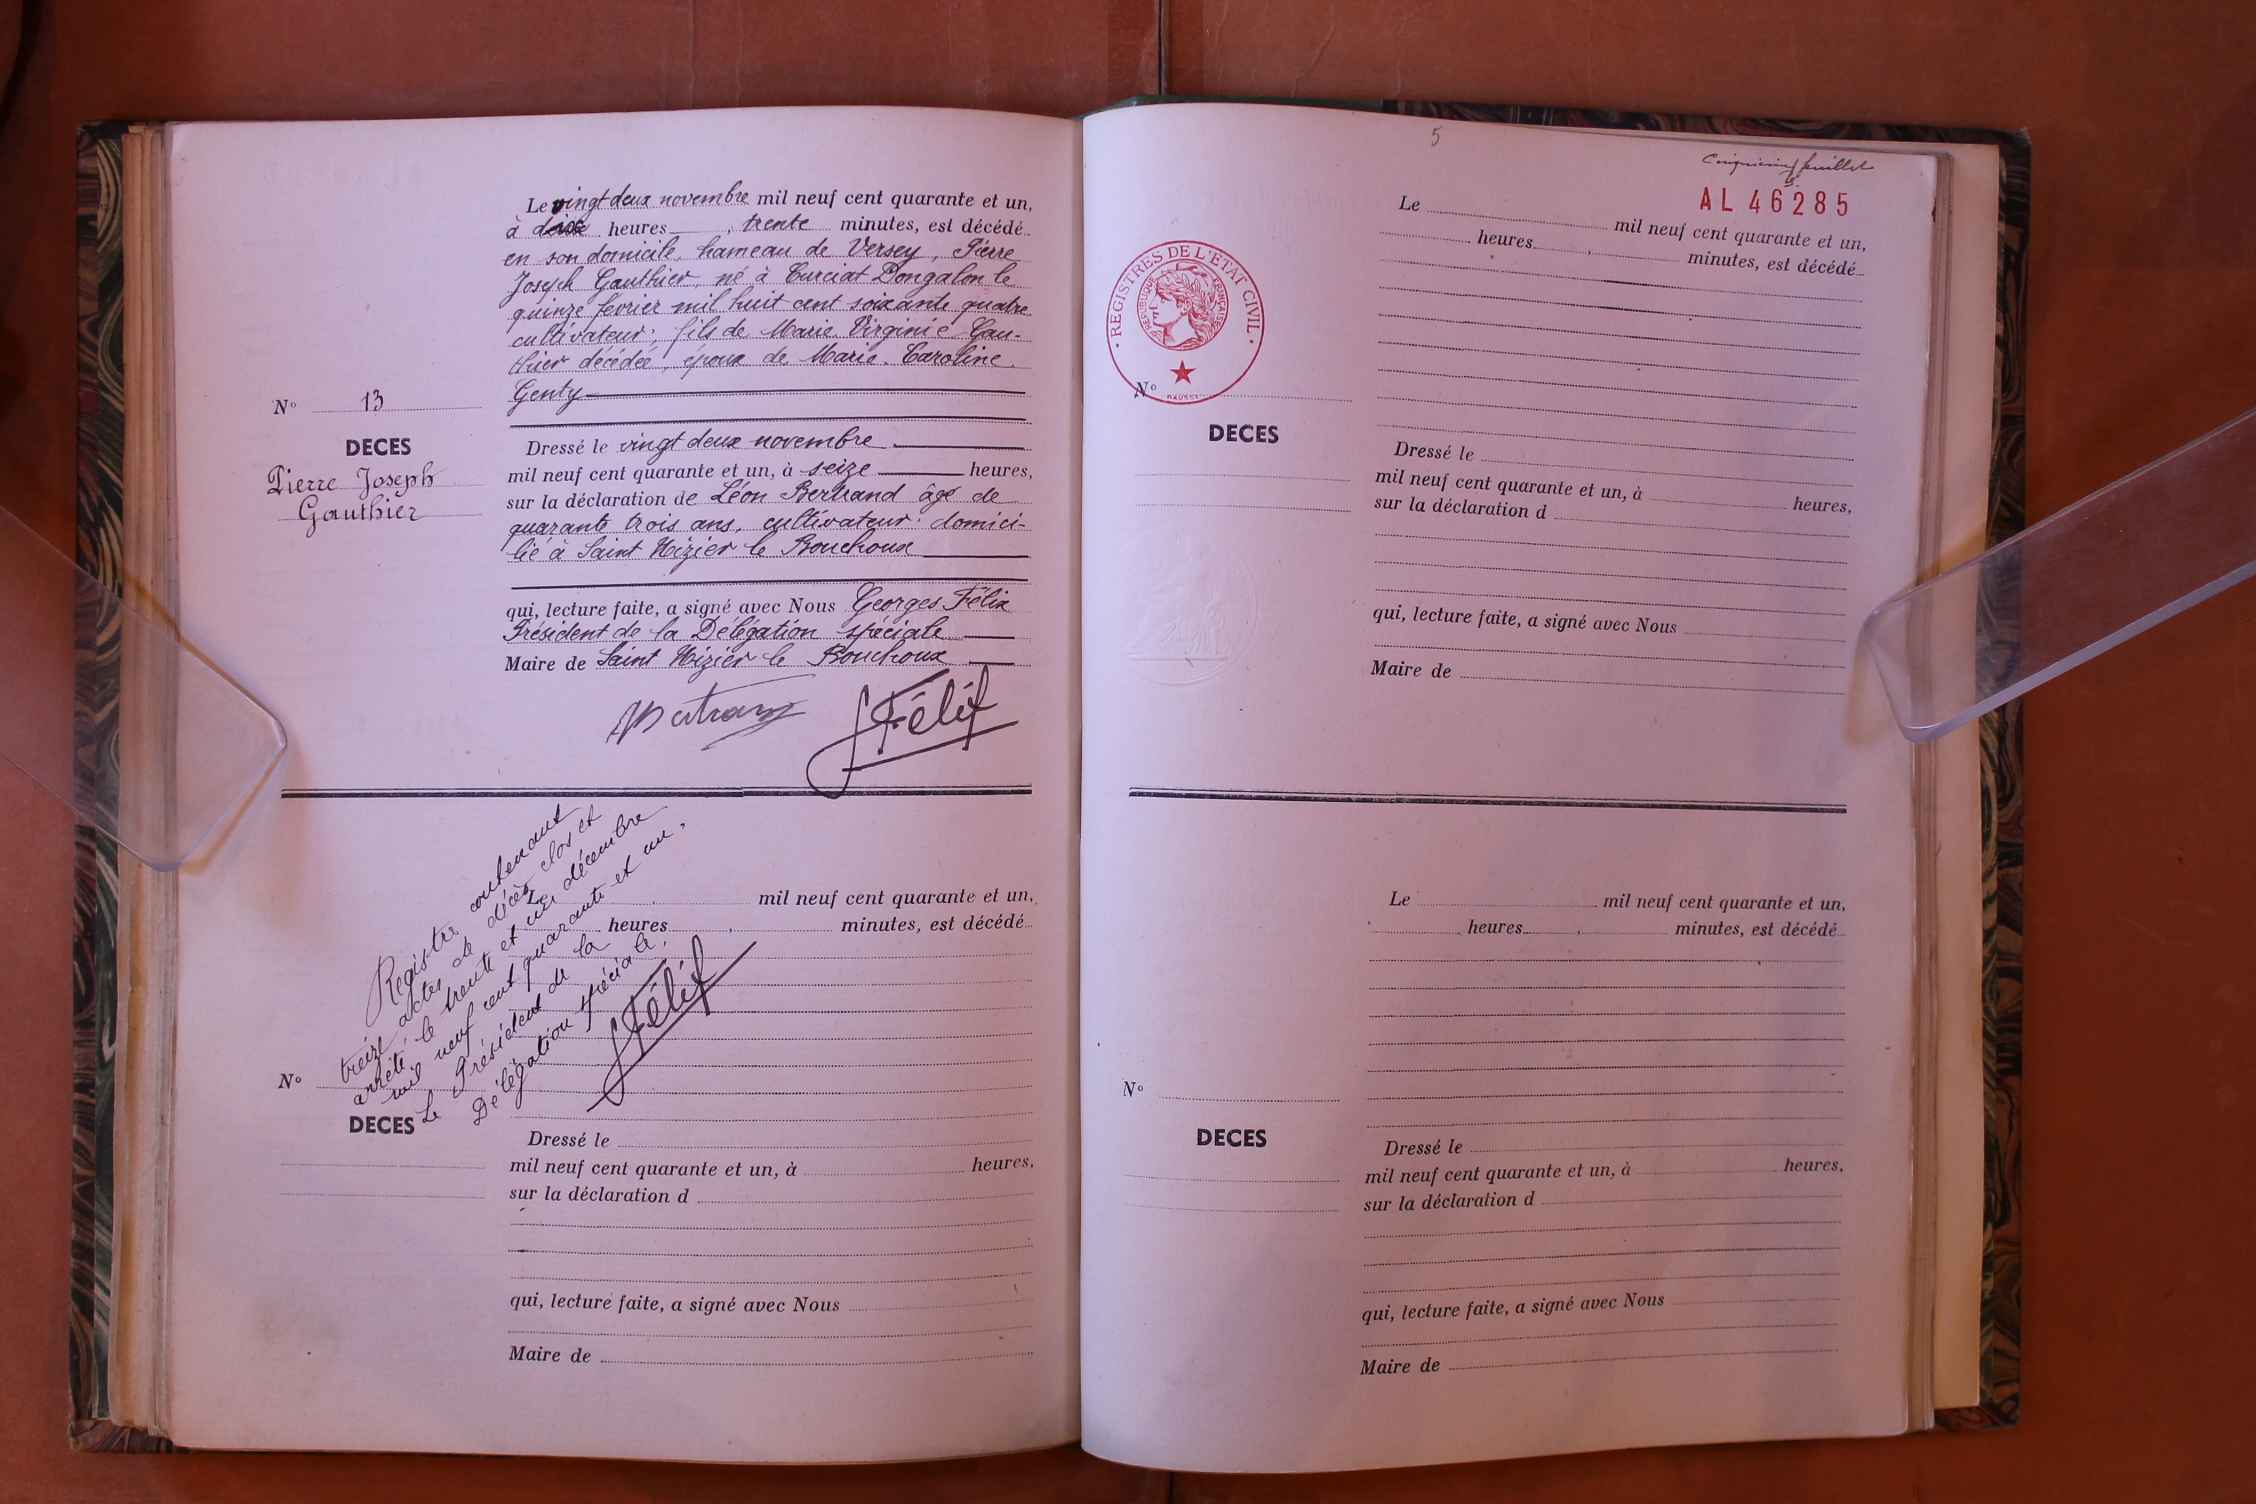 Le vingt deux novembre mil neuf cent quarante et un,
à heures , trente minutes, est décédé
en son domicile, hameau de Versey, Pierre
Joseph Gauthier, né à Curciat Dongalon le
quinze février mil huit cent soixante quatre
cultivateur, fils de Marie Virginie Gau-
thier décédée, époux de Marie Caroline
Genty
N° 13
DECES
Pierre Joseph
Gauthier
Dressé le vingt deux novembre
mil neuf cent quarante et un, à seize heures,
sur la déclaration de Léon Bertrand âgé de
quarante trois ans, cultivateur domici-
lié à Saint Nizier le Bouchoux
qui, lecture faite, a signé avec Nous Georges Félix
Président de la Délégation spéciale
Maire de Saint Nizier le Bouchoux
Bertrand
GFélix
Registre contenant
treize actes de décès clos et
arrêté le trente et un décembre
mil neuf cent quarante et un,
Le Président de la
Délégation spéciale,
GFélix
Le mil neuf cent quarante et un,
heures , minutes, est décédé
N°
DECES
Dressé le
mil neuf cent quarante et un, à heures,
sur la déclaration d
qui, lecture faite, a signé avec Nous
Maire de
5
feuillet
AL 46285
Le mil neuf cent quarante et un,
heures , minutes, est décédé
REGISTRES DE L'ETAT CIVIL
REPUBLIQUE FRANÇAISE
N°
DECES
Dressé le
mil neuf cent quarante et un, à heures,
sur la déclaration d
qui, lecture faite, a signé avec Nous
Maire de
Le mil neuf cent quarante et un,
heures , minutes, est décédé
N°
DECES
Dressé le
mil neuf cent quarante et un, à heures,
sur la déclaration d
qui, lecture faite, a signé avec Nous
Maire de